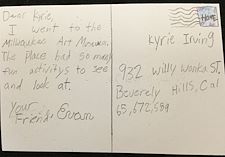 Dear Kyrie,
I went to the
Milwaukee Art Museum.
The place had so many
fun activitys to see
and look at.
Your
Friend, Evan
HOME
Kyrie Irving
932 Willy Wonka ST.
Beverly Hills, Cal
65,672,589